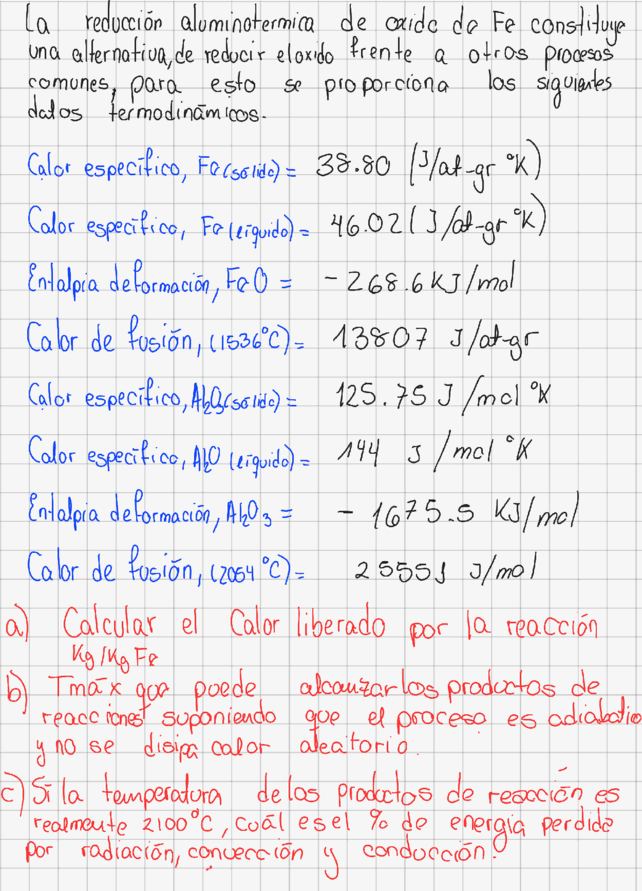 La reducción aluminotermica de oxido de Fe constituye
una alternativa, de reducir el oxido frente a otros procesos
comunes, para esto se proporciona los siguientes
datos termodinámicos.
Calor específico, Fe(sólido) = 38.80 (J/at-gr °K)
Calor específico, Fe (líquido) = 46.02 (J/at-gr °K)
Entalpia deformación, FeO = - 268.6 KJ/mol
Calor de fusión, (1536°C) = 13807 J/at-gr
Calor específico, Al2O3(sólido) = 125.75 J/mol °K
Calor específico, Al2O (líquido) = 144 J/mol °K
Entalpia deformación, Al2O3 = - 1675.5 KJ/mol
Calor de fusión, (2054 °C) = 25551 J/mol
a) Calcular el Calor liberado por la reacción
Kg/Kg Fe
b) Tmáx que puede alcanzar los productos de
reacciones suponiendo que el proceso es adiabatio
y no se disipa calor aleatorio.
c) Si la temperatura de los productos de reacción es
realmente 2100°C, cuál es el % de energia perdida
por radiación, convección y conducción.